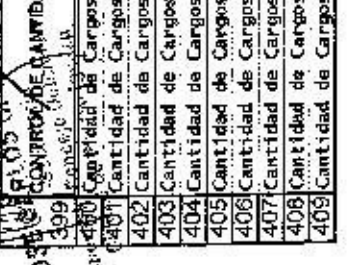 CONTROL DE CANTID
399
400 Cantidad de Cargos
401 Cantidad de Cargos
402 Cantidad de Cargos
403 Cantidad de Cargos
404 Cantidad de Cargos
405 Cantidad de Cargos
406 Cantidad de Cargos
407 Cantidad de Cargos
408 Cantidad de Cargos
409 Cantidad de Cargos